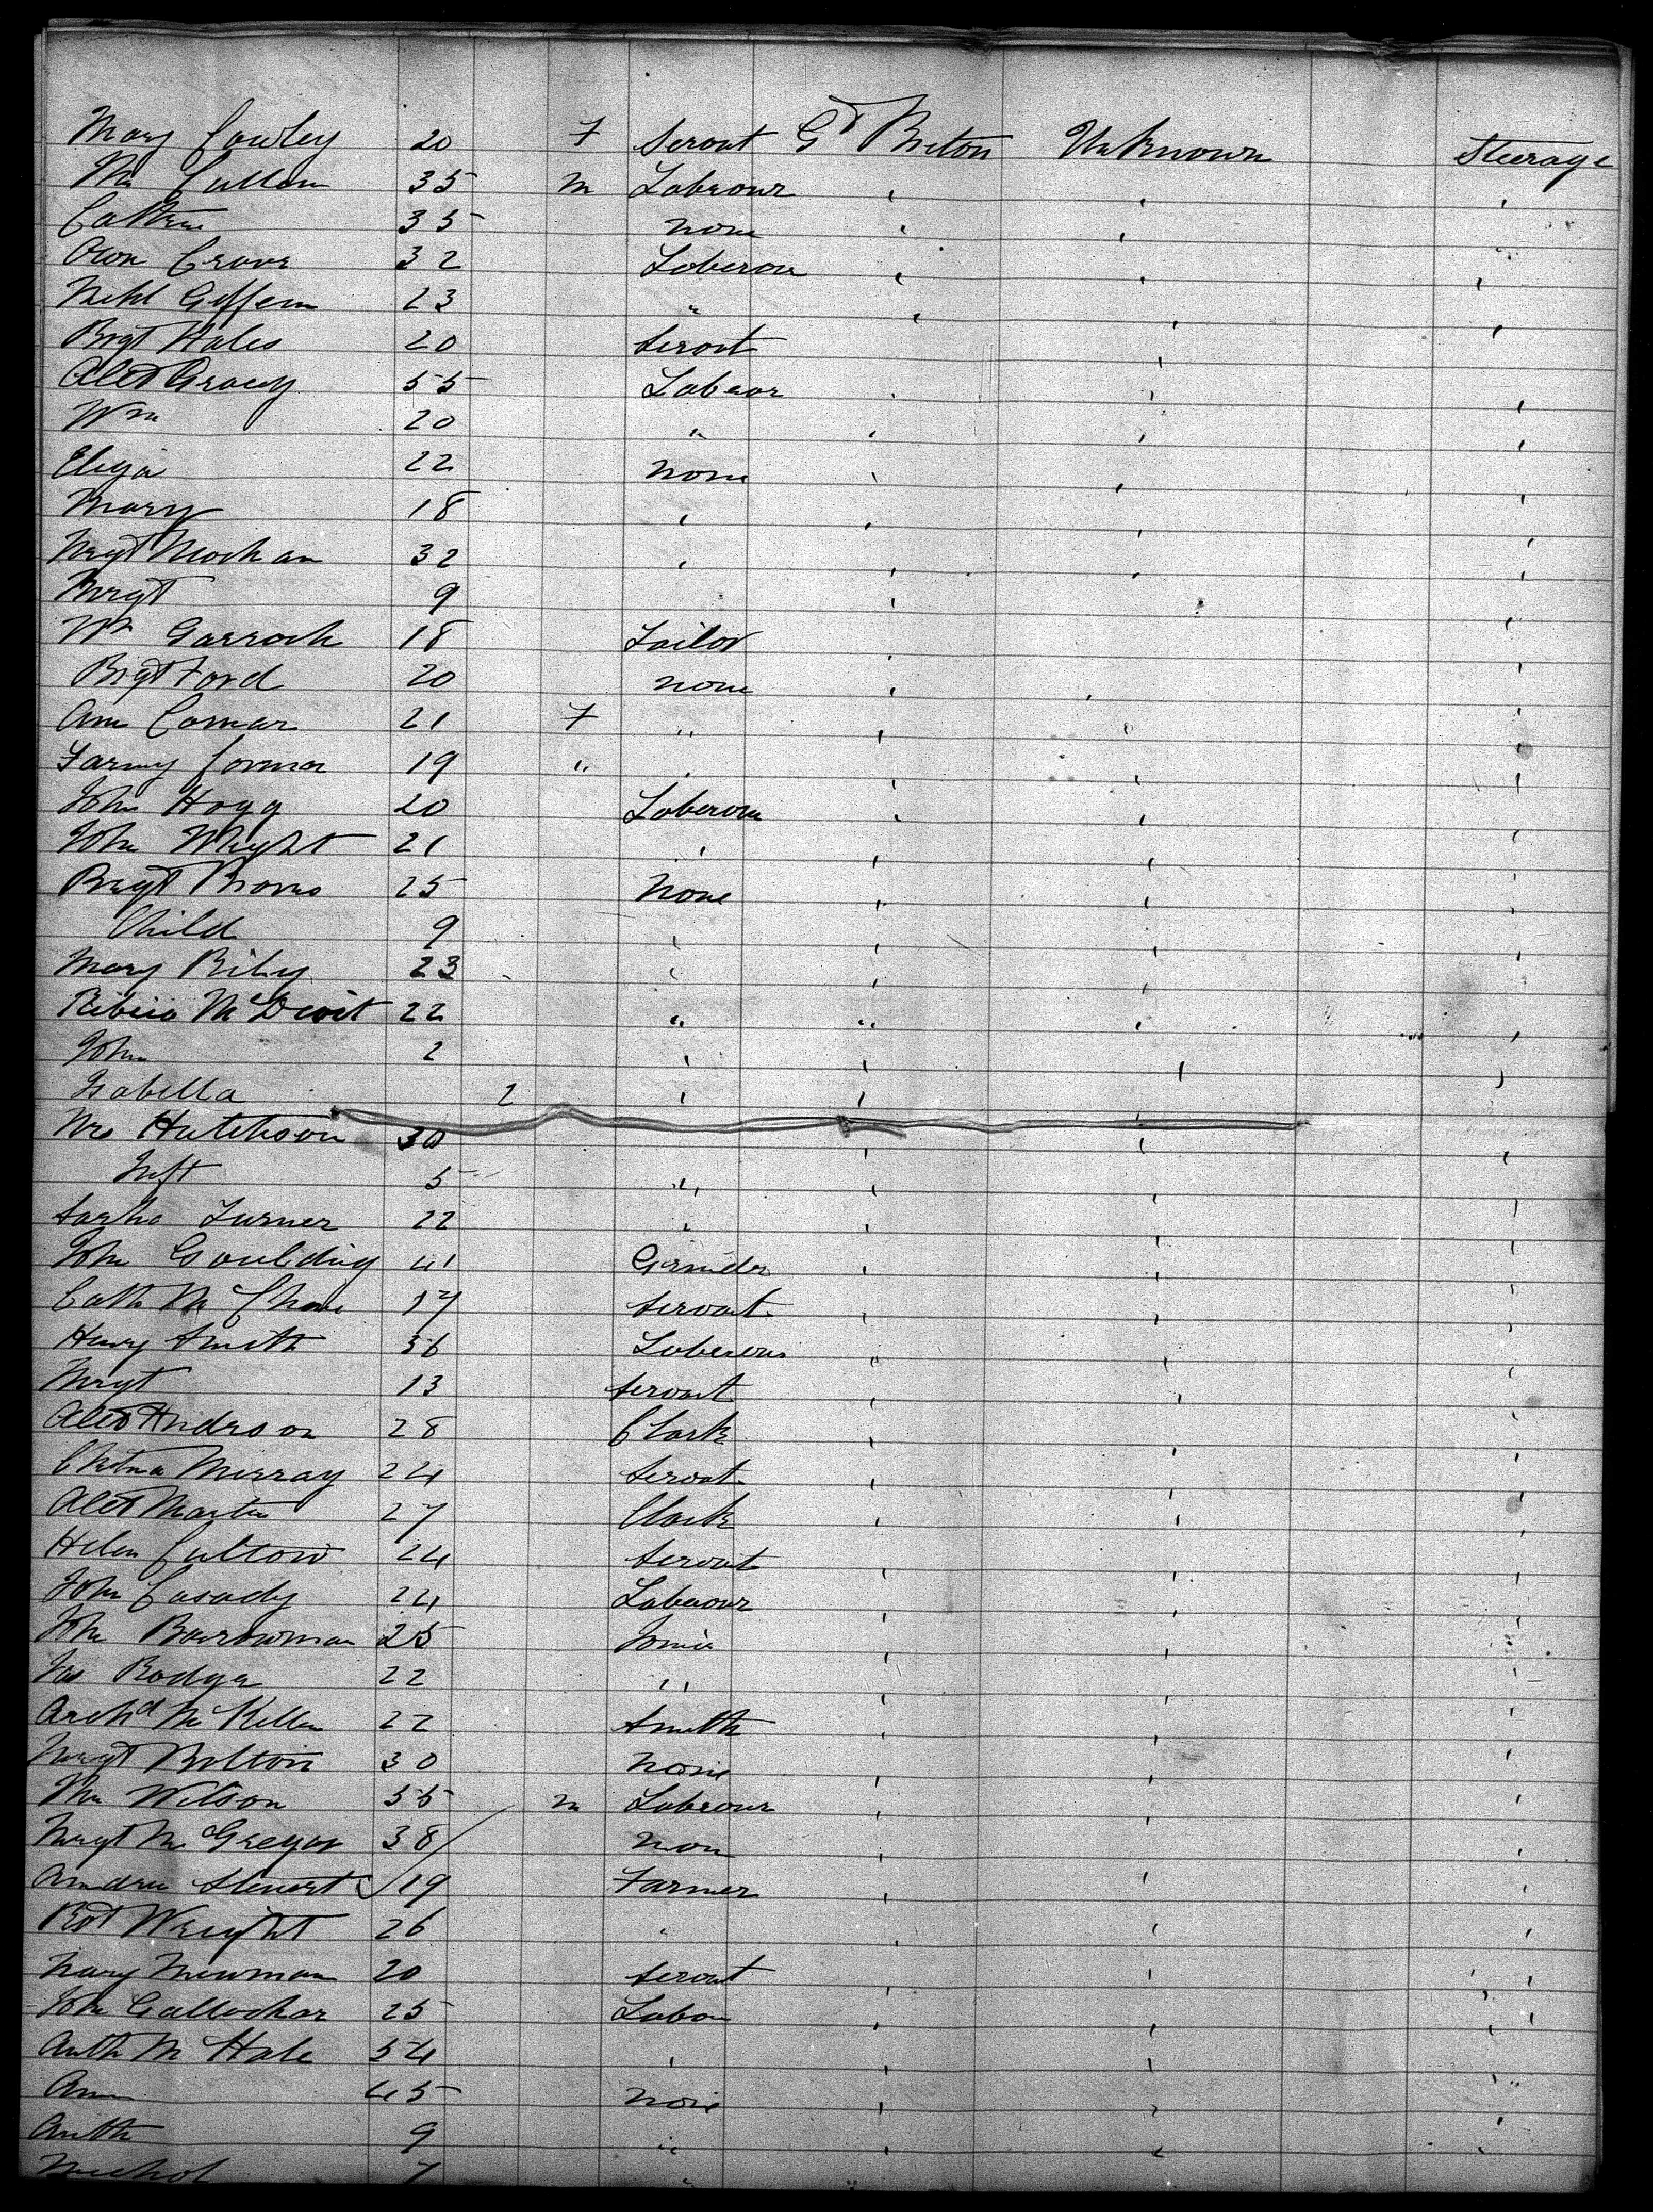 Mary Cowley 20 F Servt Gt Breton Unknown Steerage
Wm Cullen 35 m Labrour , , ,
Cathrn 35 none , ,
Own 32 Laberou , , ,
23 " , , ,
Brgt Hales 20 Servt ,
Alexr Gracey 55 Labror , , ,
Wm 20 " , , ,
Eliza 22 none , , ,
Mary 18 , , , ,
Mrgt Meehan 32 , , , ,
Mrgt 9 ,
Wm Garroch 18 Tailor , ,
Brgt Ford 20 none , , ,
Ann Comar 21 F " , , ,
Fanny Connor 19 " , , , ,
John Hogg 20 Laberou , , ,
John Wright 21 , , , ,
Brgt 25 None , , ,
Child 9 , , , ,
Mary Riley 23 , , , ,
McDevit 22 " " , ,
John 2 , , , ,
Isabella 2 , , ,
Mrs Hutchson 30 , , ,
Inft 5 " , , ,
Turner 22 " , , ,
John Goulding 41 Grinder , , ,
Cath 17 Servant , , ,
Henry Smith 36 Laberour " , ,
Mrgt 13 Servant , ,
Alexr Anderson 28 Clark , , ,
Chrtna Murray 24 Servt , , ,
Alexr Martin 27 Clark , , ,
Helen 24 Servant , , ,
John Casady 24 Labrour , , ,
John Barrowman 25 , , ,
Jas Rodger 22 " , , ,
Archd McKellen 22 Smith , , ,
Mrgt Bolton 30 none , , ,
Wm Wilson 55 m Labrour , , ,
Mrgt McGregor 38 non , , ,
Andrew Stewert 19 Farmer , , ,
Robt Wright 26 " , , ,
Mary Newman 20 Servt , , ,
John Gallochar 25 Labou , , ,
Anth McHale 54 , , , ,
Ann 45 none , , ,
Anth 9 " , , ,
Michal 7 "